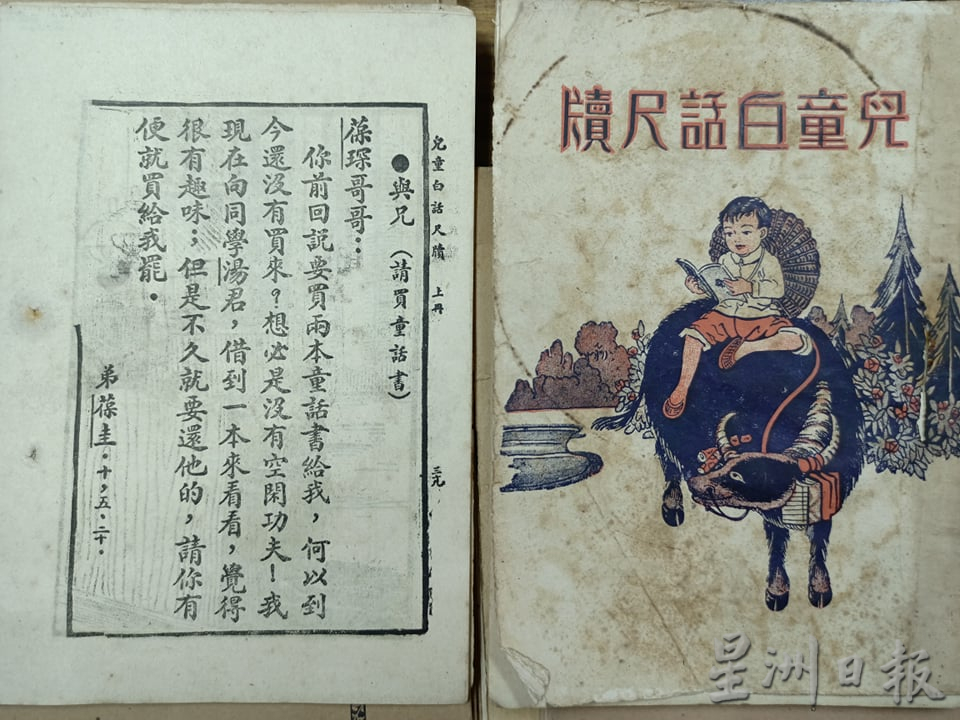 兒童白話尺牘
兒童白話尺牘 上冊 三九
●與兄(請買童話書)
葆琛哥哥:
你前回説要買兩本童話書給我,何以到
今還沒有買來?想必是沒有空閑功夫!我
現在向同學湯君,借到一本來看看,覺得
很有趣味;但是不久就要還他的,請你有
便就買給我罷.
弟葆圭.十,五.二十.
星洲日報